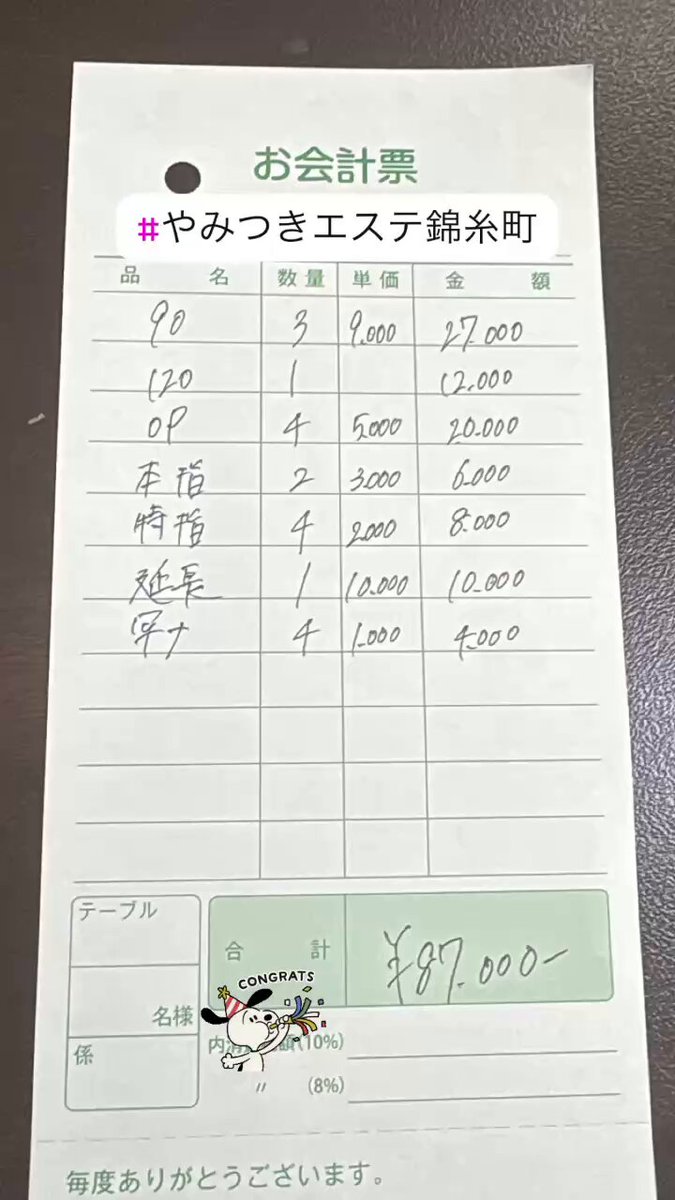 お会計票
#やみつきエステ錦糸町
品 名 数量 単価 金 額
90 3 9.000 27.000
120 1 12.000
OP 4 5.000 20.000
本指 2 3.000 6.000
特指 4 2.000 8.000
延長 1 10.000 10.000
4 1.000 4.000
テーブル
合 計 ¥87.000-
CONGRATS
名様
係
(10%)
〃 (8%)
毎度ありがとうございます。